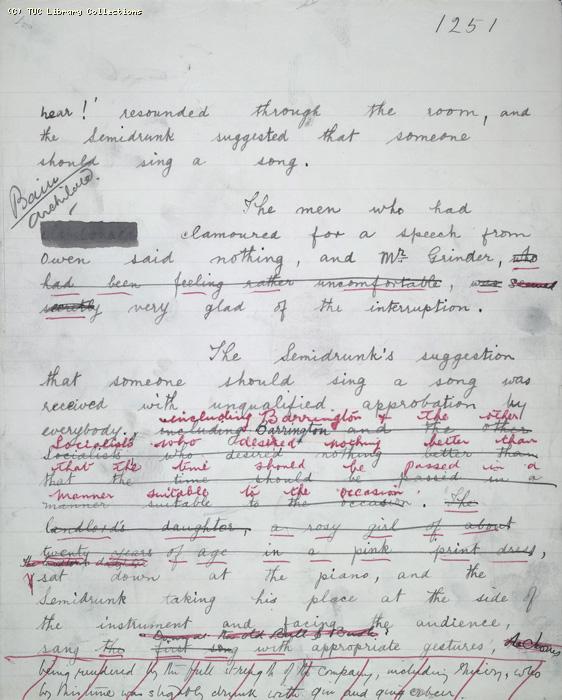 (C) TUC Library Collections
1251
hear!' resounded through the room, and
the Semidrunk suggested that someone
should sing a song.
The men who had
clamoured for a speech from
Owen said nothing, and Mr. Grinder, who
had been feeling rather uncomfortable, was
secretly very glad of the interruption.
The Semidrunk's suggestion
that someone should sing a song was
received with unqualified approbation by
including Barrington & the other
everybody. including Barrington and the other
Socialists who desired nothing better than
Socialists who desired nothing better than
that the time should be passed in a
that the time should be passed in a
manner suitable to the occasion.
manner suitable to the occasion. The
landlord's daughter, a rosy girl of about
twenty years of age in a pink print dress,
sat down at the piano, and the
Semidrunk taking his place at the side of
the instrument and facing the audience,
sang the first song with appropriate gestures,
being rendered by the full strength of the company, including
was slightly drunk with gin and ginger beer.